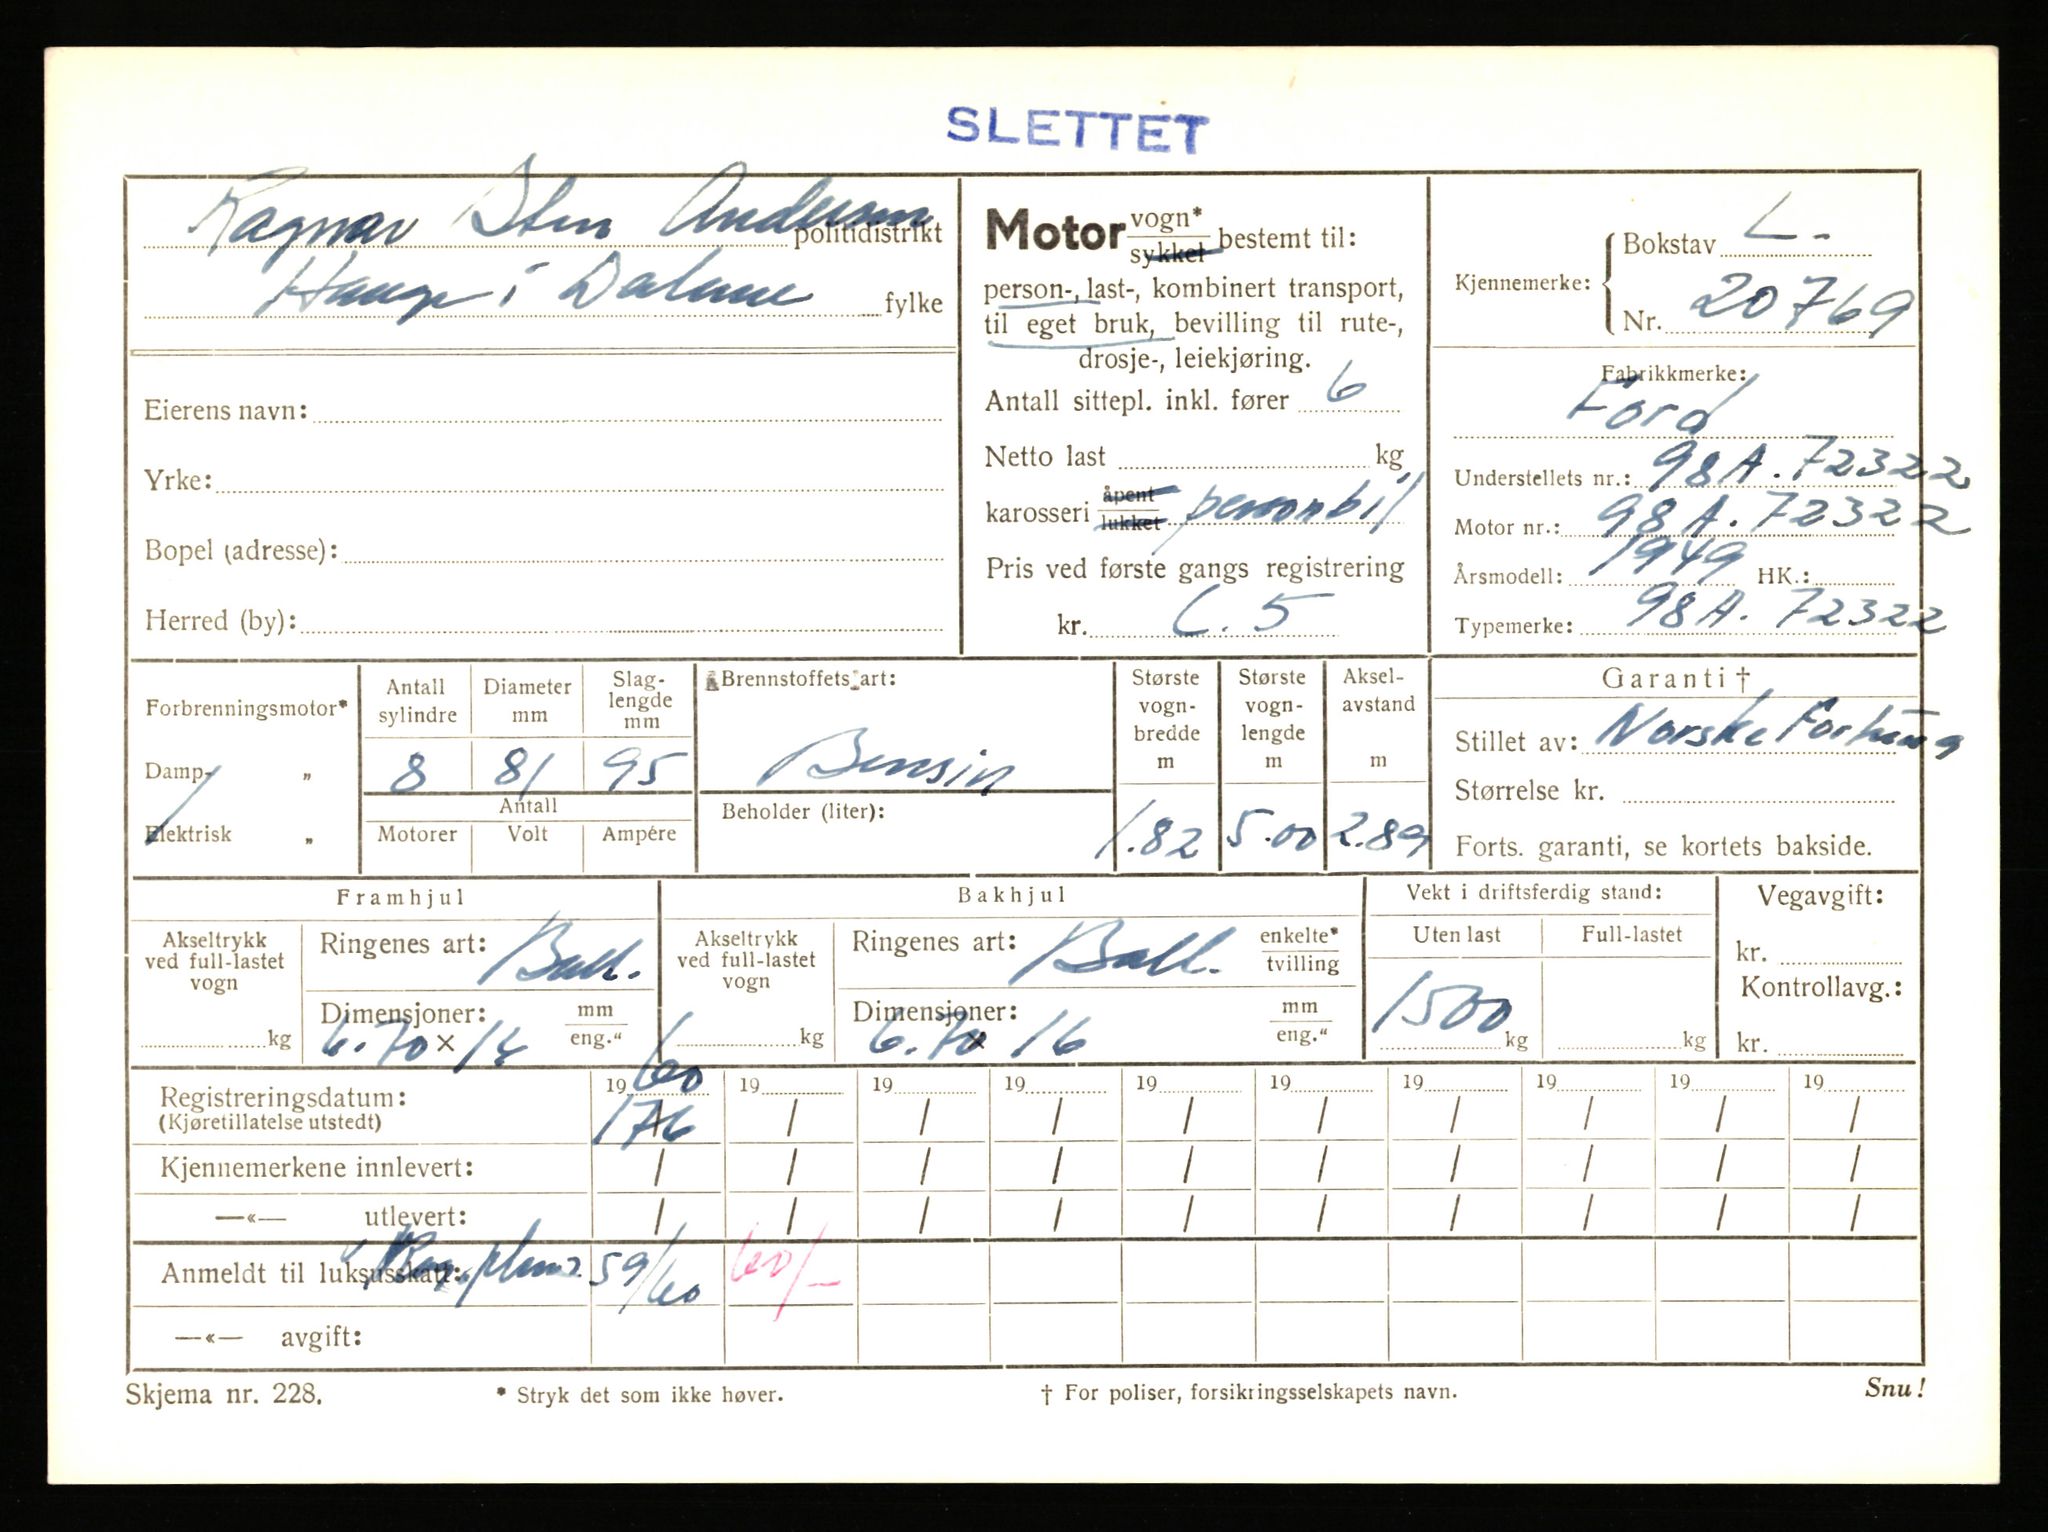 SLETTET
Ragnar Sten Andersen politidistrikt
Hauge i Dalane fylke
Eierens navn:
Yrke:
Bopel (adresse):
Herred (by):
Motor vogn* sykkel bestemt til:
person-, last-, kombinert transport,
til eget bruk, bevilling til rute-,
drosje-, leiekjøring.
Antall sittepl. inkl. fører 6
Netto last kg
karosseri åpent lukket personbil
Pris ved første gangs registrering
kr. L. 5
Kjennemerke: Bokstav L.-
Nr. 20769
Fabrikkmerke:
Ford
Understellets nr.: 98A.72322
Motor nr.: 98A.72322
Årsmodell: 1949 HK.:
Typemerke: 98A.72322
Forbrenningsmotor*
Damp- „
Elektrisk „
Antall sylindre
Diameter mm
Slag-lengde mm
8 81 95
Antall
Motorer Volt Ampére
Brennstoffets art:
Bensin
Beholder (liter):
Største vogn-bredde m
1.82
Største vogn-lengde m
5.00
Aksel-avstand m
2.89
Garanti †
Stillet av: Norske
Størrelse kr.
Forts. garanti, se kortets bakside.
Framhjul
Akseltrykk ved full-lastet vogn
kg
Ringenes art: Ball.
Dimensjoner: mm eng."
6.70 x 16
Bakhjul
Akseltrykk ved full-lastet vogn
kg
Ringenes art: Ball. enkelte* tvilling
Dimensjoner: mm eng."
6.70 x 16
Vekt i driftsferdig stand:
Uten last Full-lastet
1500 kg kg
Vegavgift:
kr.
Kontrollavg.:
kr.
Registreringsdatum: 1960 19 19 19 19 19 19 19 19 19
(Kjøretillatelse utstedt) 17/6 / / / / / / / / /
Kjennemerkene innlevert: / / / / / / / / / /
—«— utlevert: / / / / / / / / / /
Anmeldt til luksusskatt: 59/60 60/-
—«— avgift:
Skjema nr. 228. * Stryk det som ikke høver. † For poliser, forsikringsselskapets navn. Snu!